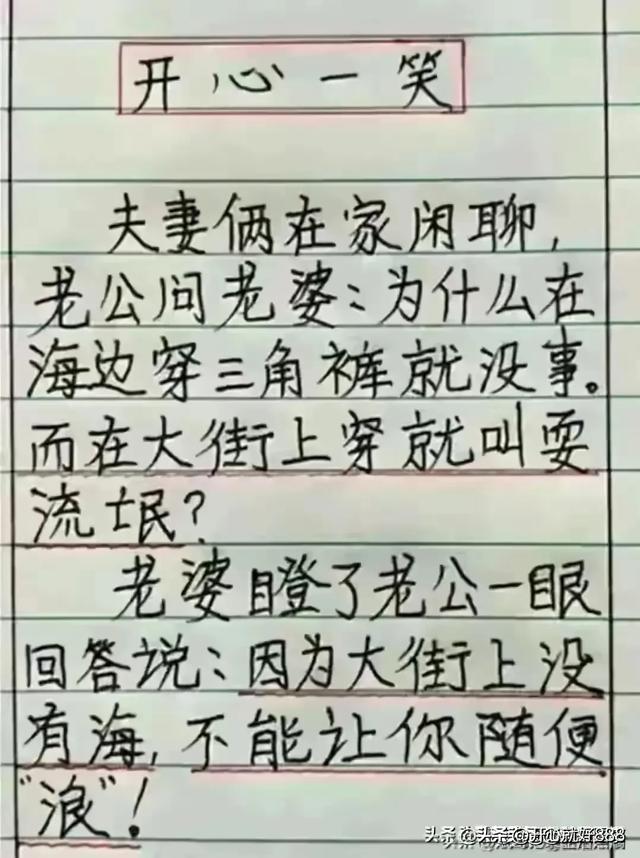 开心一笑
夫妻俩在家闲聊,
老公问老婆:为什么在
海边穿三角裤就没事。
而在大街上穿就叫耍
流氓?
老婆瞪了老公一眼
回答说:因为大街上没
有海,不能让你随便
"浪"!
头条@开心就好888